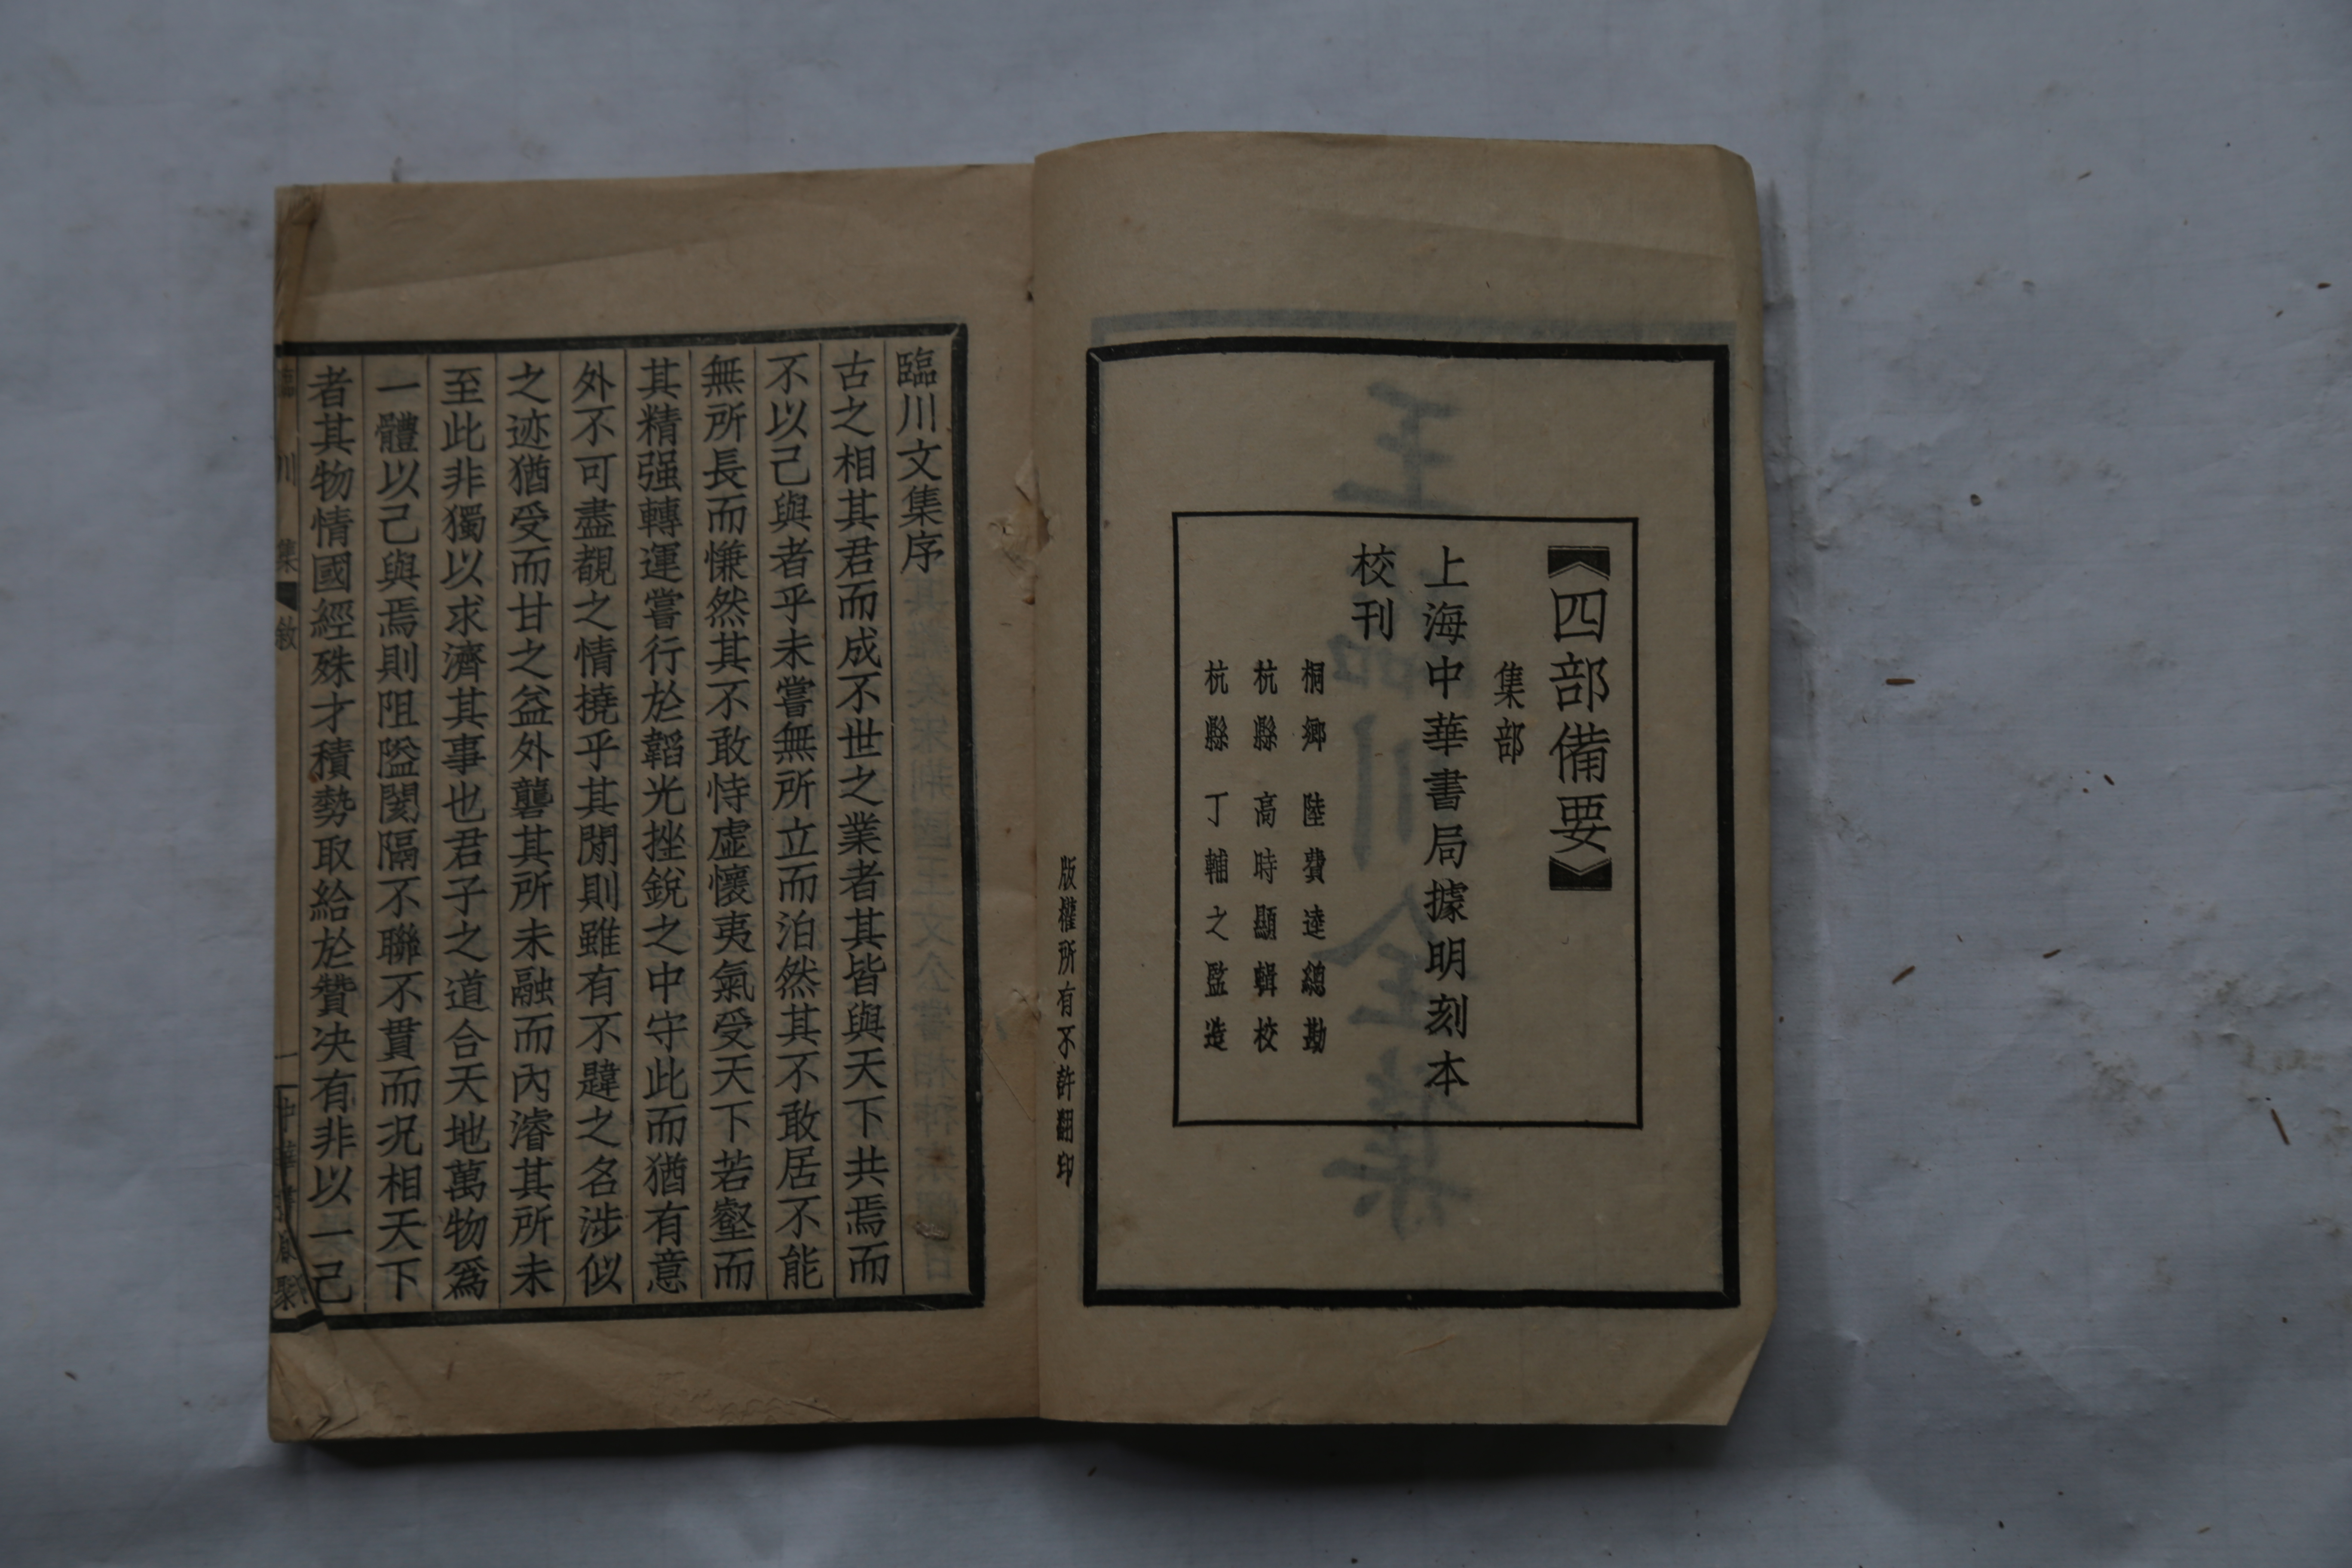 【四部備要】
集部
上海中華書局據明刻本
校刊
桐鄉 陸費逵總勘
杭縣 高時顯輯校
杭縣 丁輔之監造
版權所有不許翻印
臨川文集序
古之相其君而成不世之業者其皆與天下共焉而
不以己與者乎未嘗無所立而泊然其不敢居不能
無所長而慊然其不敢恃虛懷夷氣受天下若壑而
其精强轉運嘗行於韜光挫銳之中守此而猶有意
外不可盡覩之情撓乎其閒則雖有不韙之名涉似
之迹猶受而甘之益外礱其所未融而內濬其所未
至此非獨以求濟其事也君子之道合天地萬物爲
一體以己與焉則阻隘閡隔不聯不貫而況相天下
者其物情國經殊才積勢取給於贊决有非以一己
臨川集 敘
一 中華書局聚